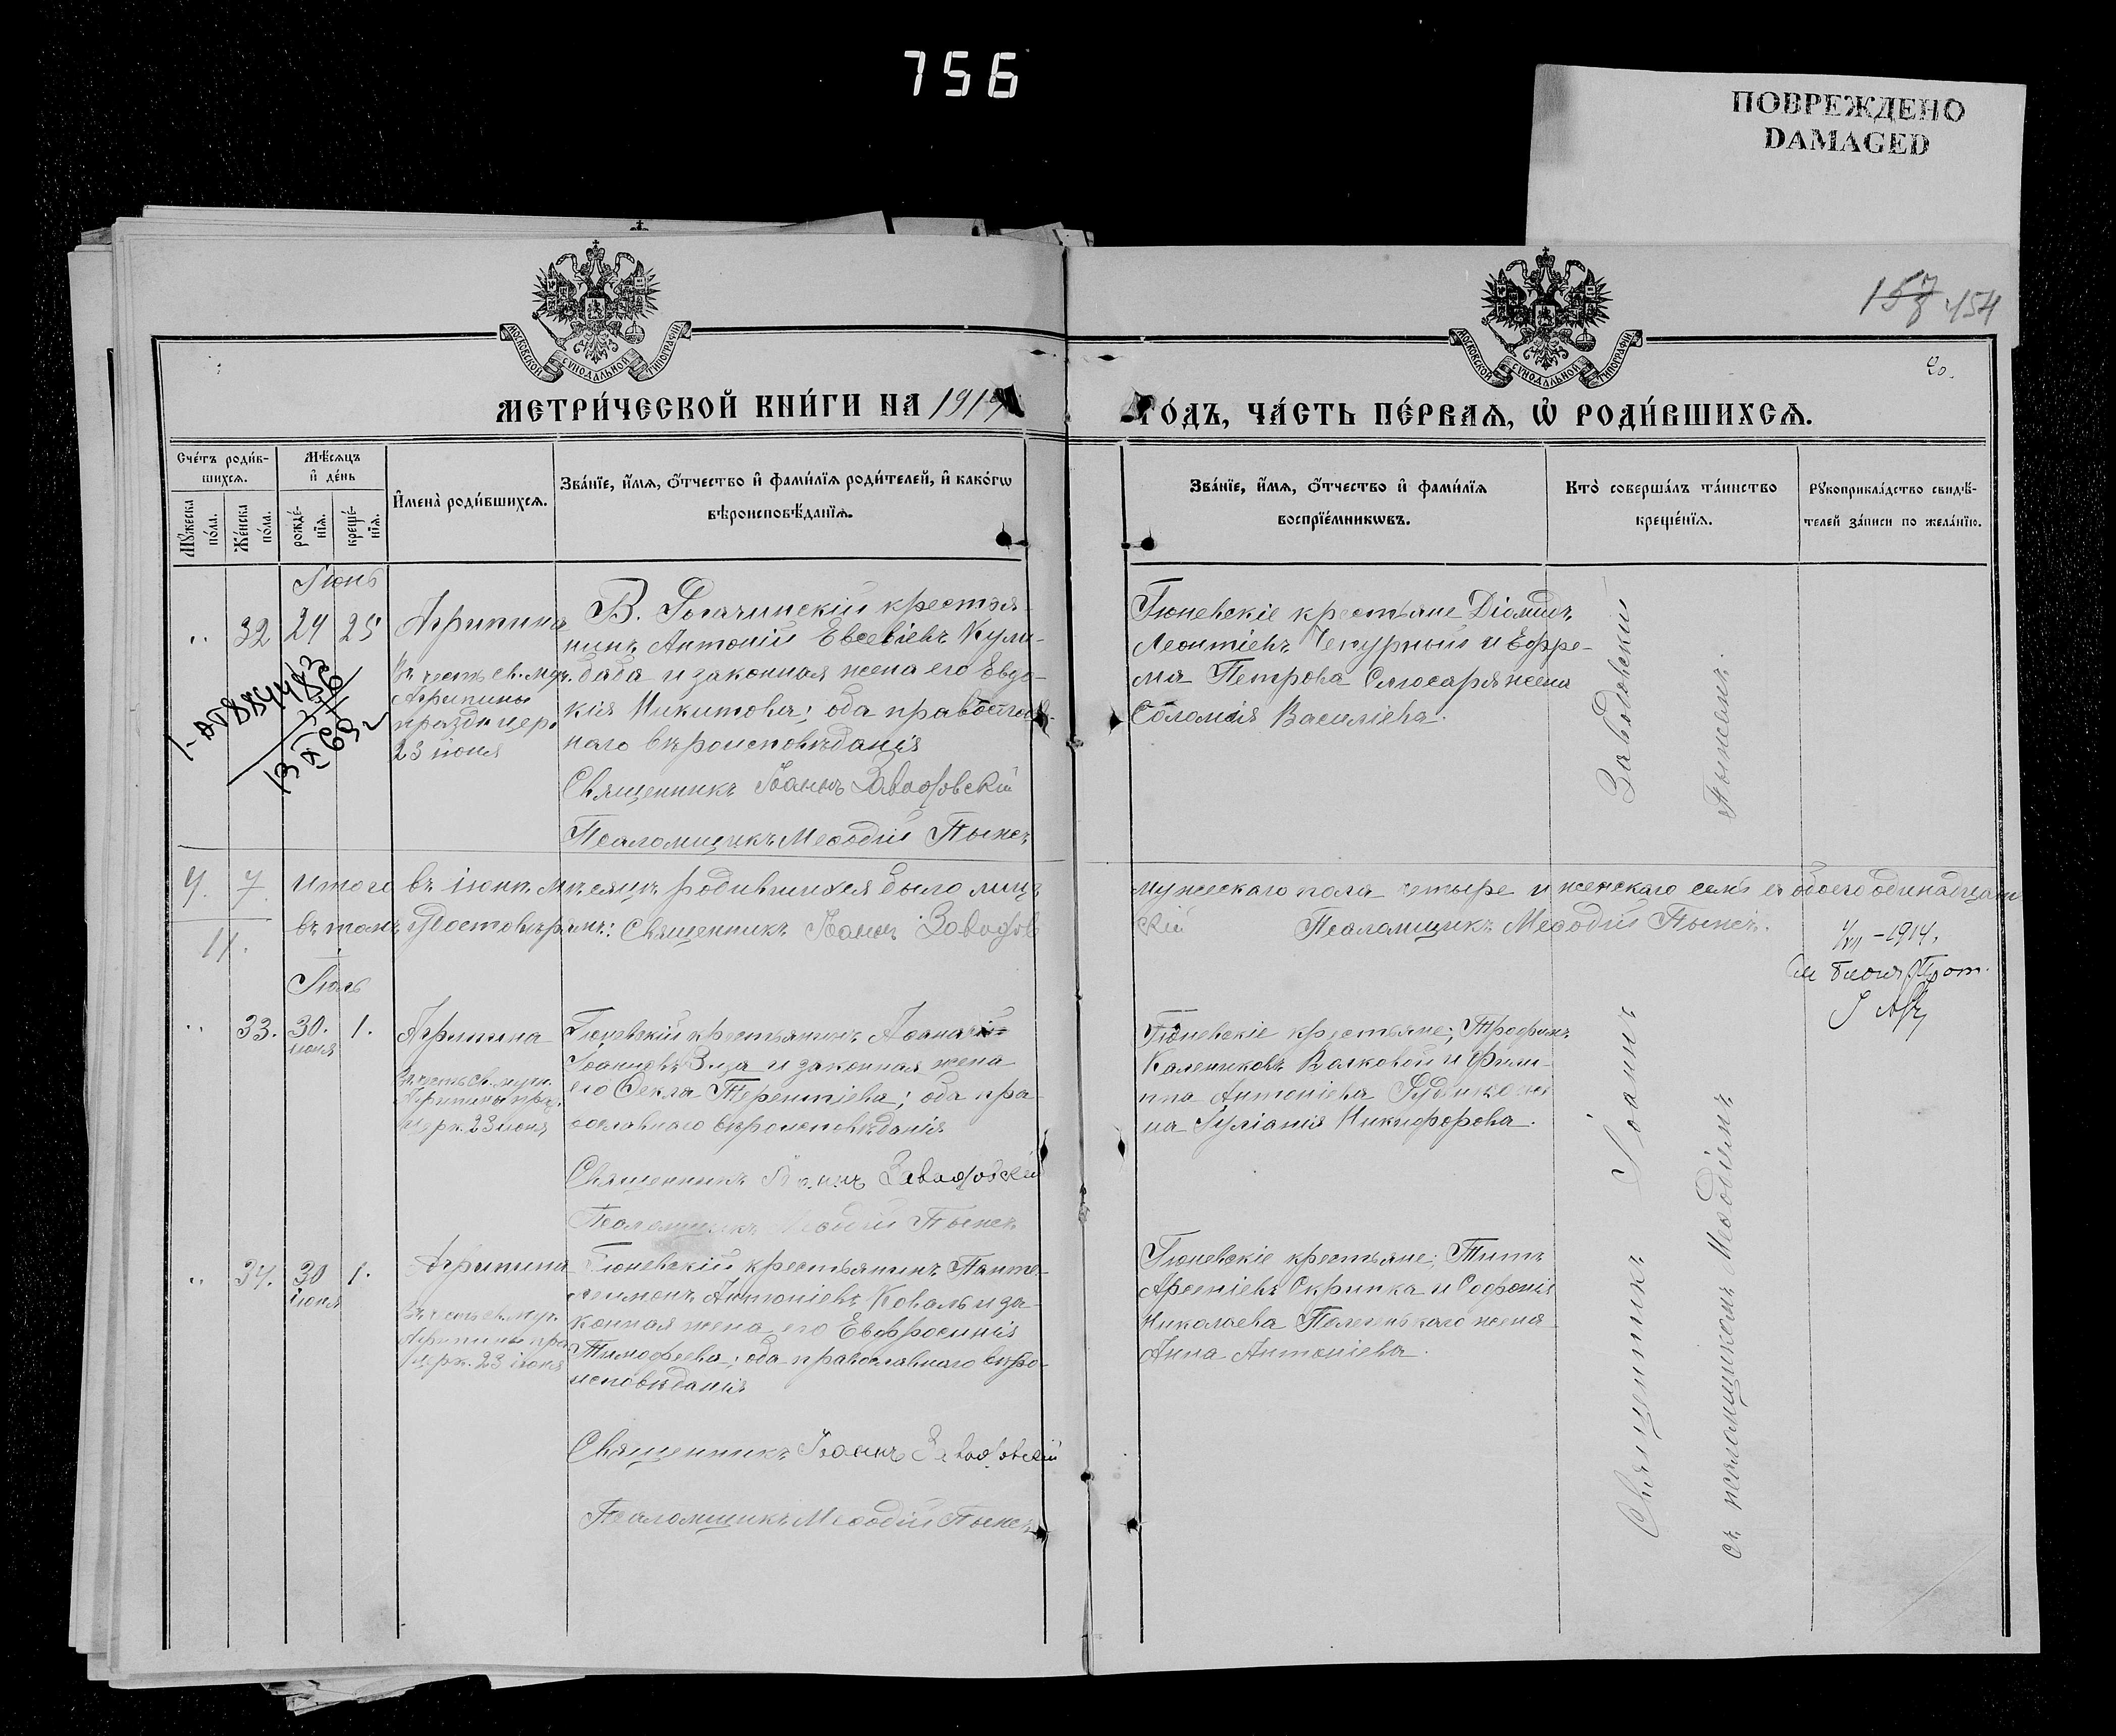 756
ПОВРЕЖДЕНО
DAMAGED
154
20.
МОСКОВСКОЙ СѴНОДАЛЬНОЙ ТИПОГРАФІИ
МОСКОВСКОЙ СѴНОДАЛЬНОЙ ТИПОГРАФІИ
МЕТРИ́ЧЕСКОЙ КНИ́ГИ НА 1914
ГО́ДЪ, ЧА́СТЬ ПЕ́РВАѦ, Ѡ҆ РОДИ́ВШИХСѦ.
Сче́тъ роди́в-
шихсѧ.
Мѣ́сѧцъ
и҆ де́нь
Мꙋ́жеска
по́ла.
Же́нска
по́ла.
рожде́-
нїѧ.
креще́-
нїѧ.
И҆мена̀ роди́вшихсѧ.
Зва́нїе, и҆́мѧ, ѻ҆́тчество и҆ фами́лїѧ роди́телей, и҆ како́гѡ
вѣроисповѣ́данїѧ.
Зва́нїе, и҆́мѧ, ѻ҆́тчество и҆ фами́лїѧ
воспрїе́мникѡвъ.
Кто̀ соверша́лъ та́инство
креще́нїѧ.
Рꙋкоприкла́дство свидѣ́-
телей за́писи по жела́нїю.
Іюнь
" 32 24 25 Агрипина
Въ честь св. муч.
Агрипины
праздн церк
23 іюня
В. Рогачинскій крестья-
нинъ Антоній Евсевіевъ Кули-
баба и законная жена его Евдо-
кія Никитова; оба православ-
наго вѣроисповѣданія
Священникъ Іоаннъ Завадовскій
Псаломщикъ Меѳодій Пынсъ
Гюневскіе крестьяне Діомидъ
Леонтіевъ Чекурный и Ефре-
ма Петрова Слюсаря жена
Соломія Василіева.
4. 7. Итого въ іюнѣ мѣсяцѣ родившихся было лицъ
мужескаго пола четыре и женскаго семь а обоего одинадцать
11. въ томъ удостовѣряемъ: Священникъ Іоаннъ Завадов
скій Псаломщикъ Меѳодій Пынсъ.
1914.
Іюль
" 33. 30. 1. Агрипина
іюня
Въ честь св. муч.
Агрипины пра.
церк. 23 іюня
Гюневскій крестьянинъ Аѳанасій
Іоанновъ Вида и законная жена
его Ѳекла Терентіева; оба пра-
вославнаго вѣроисповѣданія
Священникъ Іоаннъ Завадовскій
Псаломщикъ Меѳодій Пынсъ
Гюневскіе крестьяне; Трофимъ
Калениковъ Волковой и Фили-
ппа Антоніева Руденко же-
на Іуліанія Никифорова.
" 34. 30 1. Агрипина
іюня
Въ честь св. муч.
Агрипины пра
церк. 23 іюня
Гюневскій крестьянинъ Панте-
леимонъ Антоніевъ Коваль и за-
конная жена его Евфросинія
Тимофеева; оба православнаго вѣро-
исповѣданія
Священникъ Іоаннъ Завадовскій
Псаломщикъ Меѳодій Пынсъ
Гюневскіе крестьяне; Титъ
Арсеніевъ Скрипка и Софонія
Николаева Полегенькаго жена
Анна Антоніева.
Священникъ Іоаннъ Завадовскій
съ псаломщикомъ Меѳодіемъ Пынсемъ.